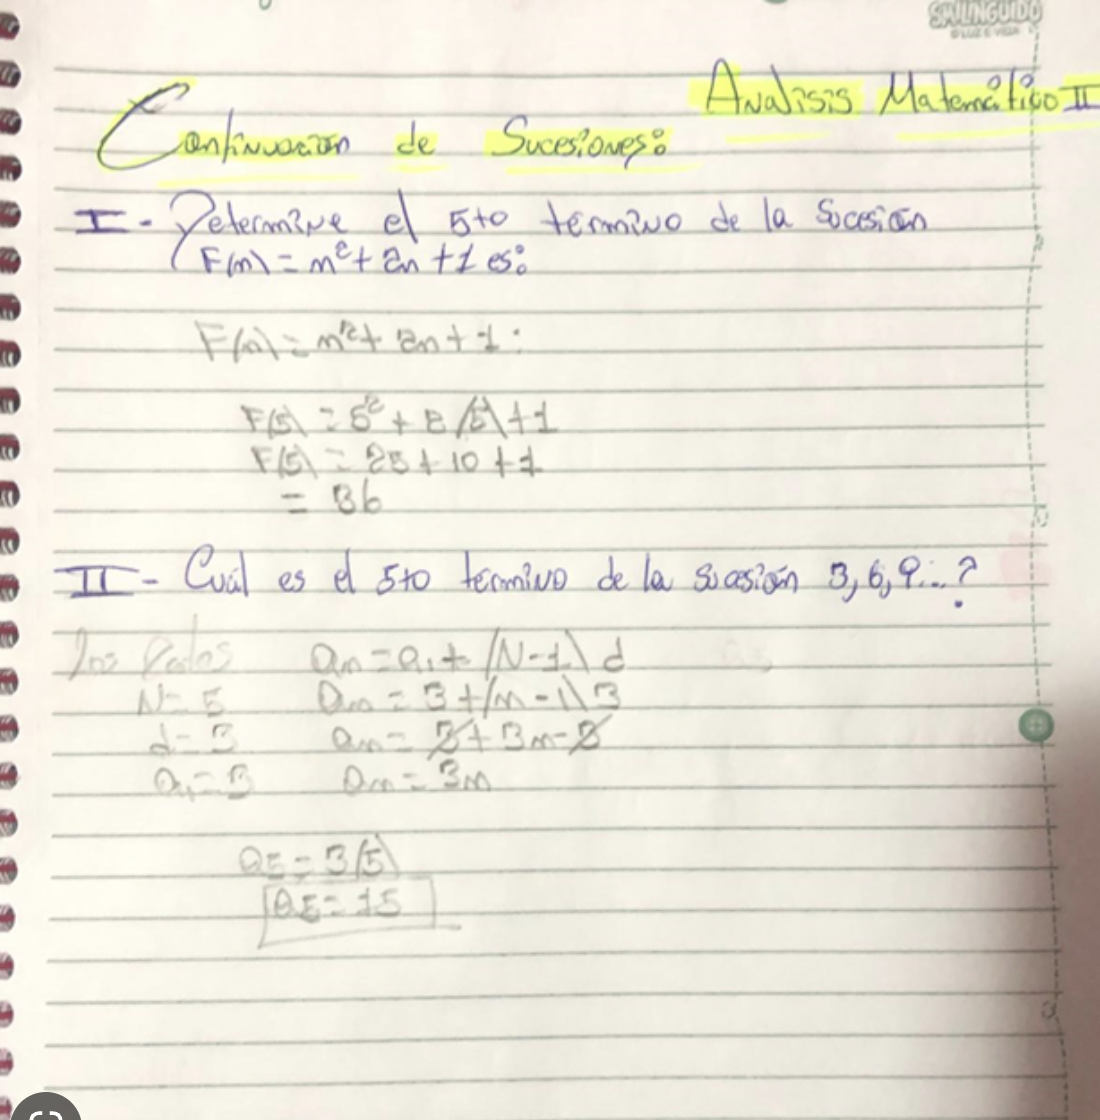 SMILINGUIDO
Analisis Matemático II
Continuación de Sucesiones:
I - Determine el 5to término de la Sucesión
F(n) = n² + 2n + 1 es:
F(n) = n² + 2n + 1:
F(5) = 5² + 2(5) + 1
F(5) = 25 + 10 + 1
= 36
II - Cuál es el 5to término de la sucesión 3, 6, 9...?
an = a1 + (N-1) d
N = 5 an = 3 + (n - 1) 3
d = 3 an = 3 + 3n - 3
a1 = 3 an = 3n
a5 = 3(5)
a5 = 15